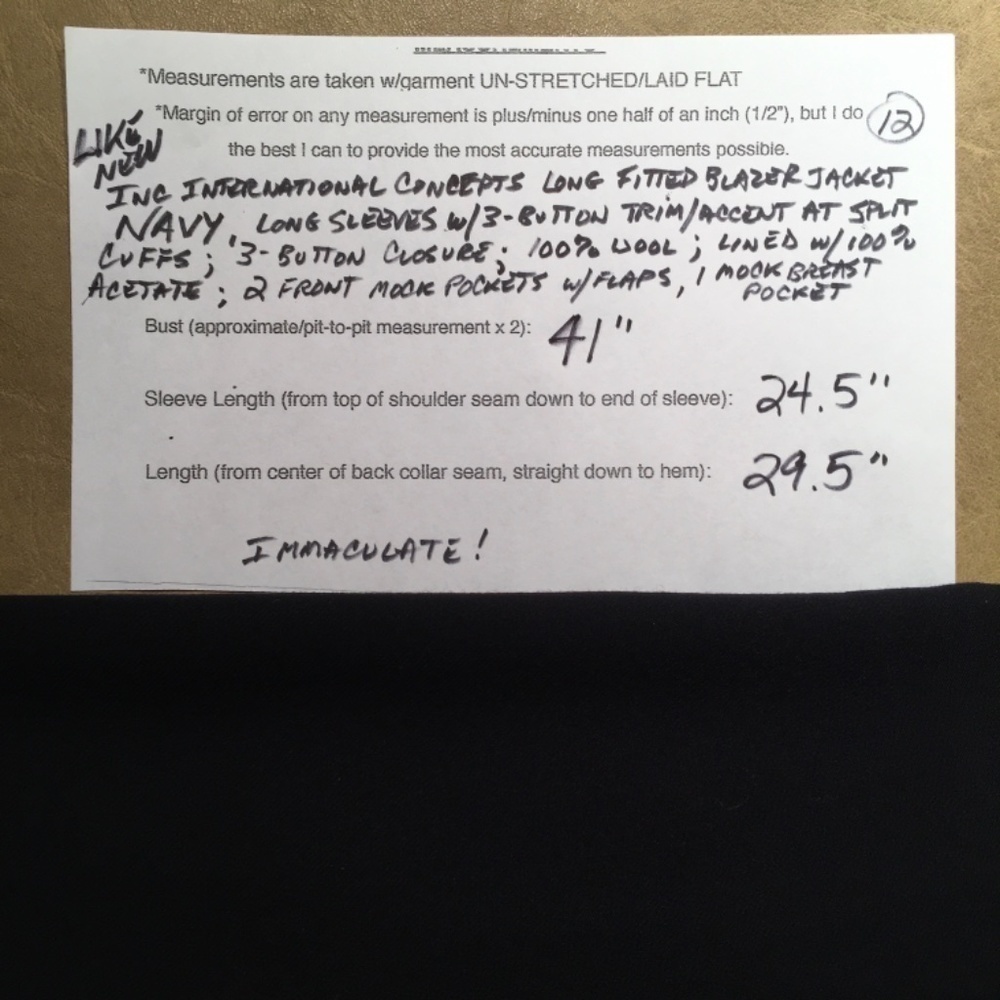 *Measurements are taken w/garment UN-STRETCHED/LAID FLAT
*Margin of error on any measurement is plus/minus one half of an inch (1/2"), but I do
12
the best I can to provide the most accurate measurements possible.
LIKE
NEW
INC INTERNATIONAL CONCEPTS LONG FITTED BLAZER JACKET
NAVY, LONG SLEEVES W/3-BUTTON TRIM/ACCENT AT SPLIT
CUFFS; 3-BUTTON CLOSURE; 100% WOOL; LINED W/100%
ACETATE; 2 FRONT MOCK POCKETS W/FLAPS, 1 MOCK BREAST
POCKET
Bust (approximate/pit-to-pit measurement x 2): 41"
Sleeve Length (from top of shoulder seam down to end of sleeve): 24.5"
Length (from center of back collar seam, straight down to hem): 29.5"
IMMACULATE!